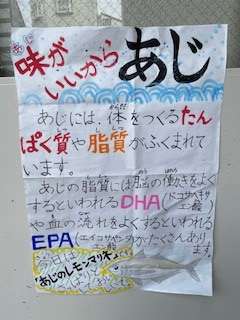 味が
いいから あじ
あじには、体をつくるたん
ぱく質や脂質がふくまれて
います。
あじの脂質には脳の働きをよく
するといわれるDHA(ドコサヘキサ
や血の流れをよくするといわれる
EPA(エイコサペン がたくさんあり
ます
あじのレモンマリネ